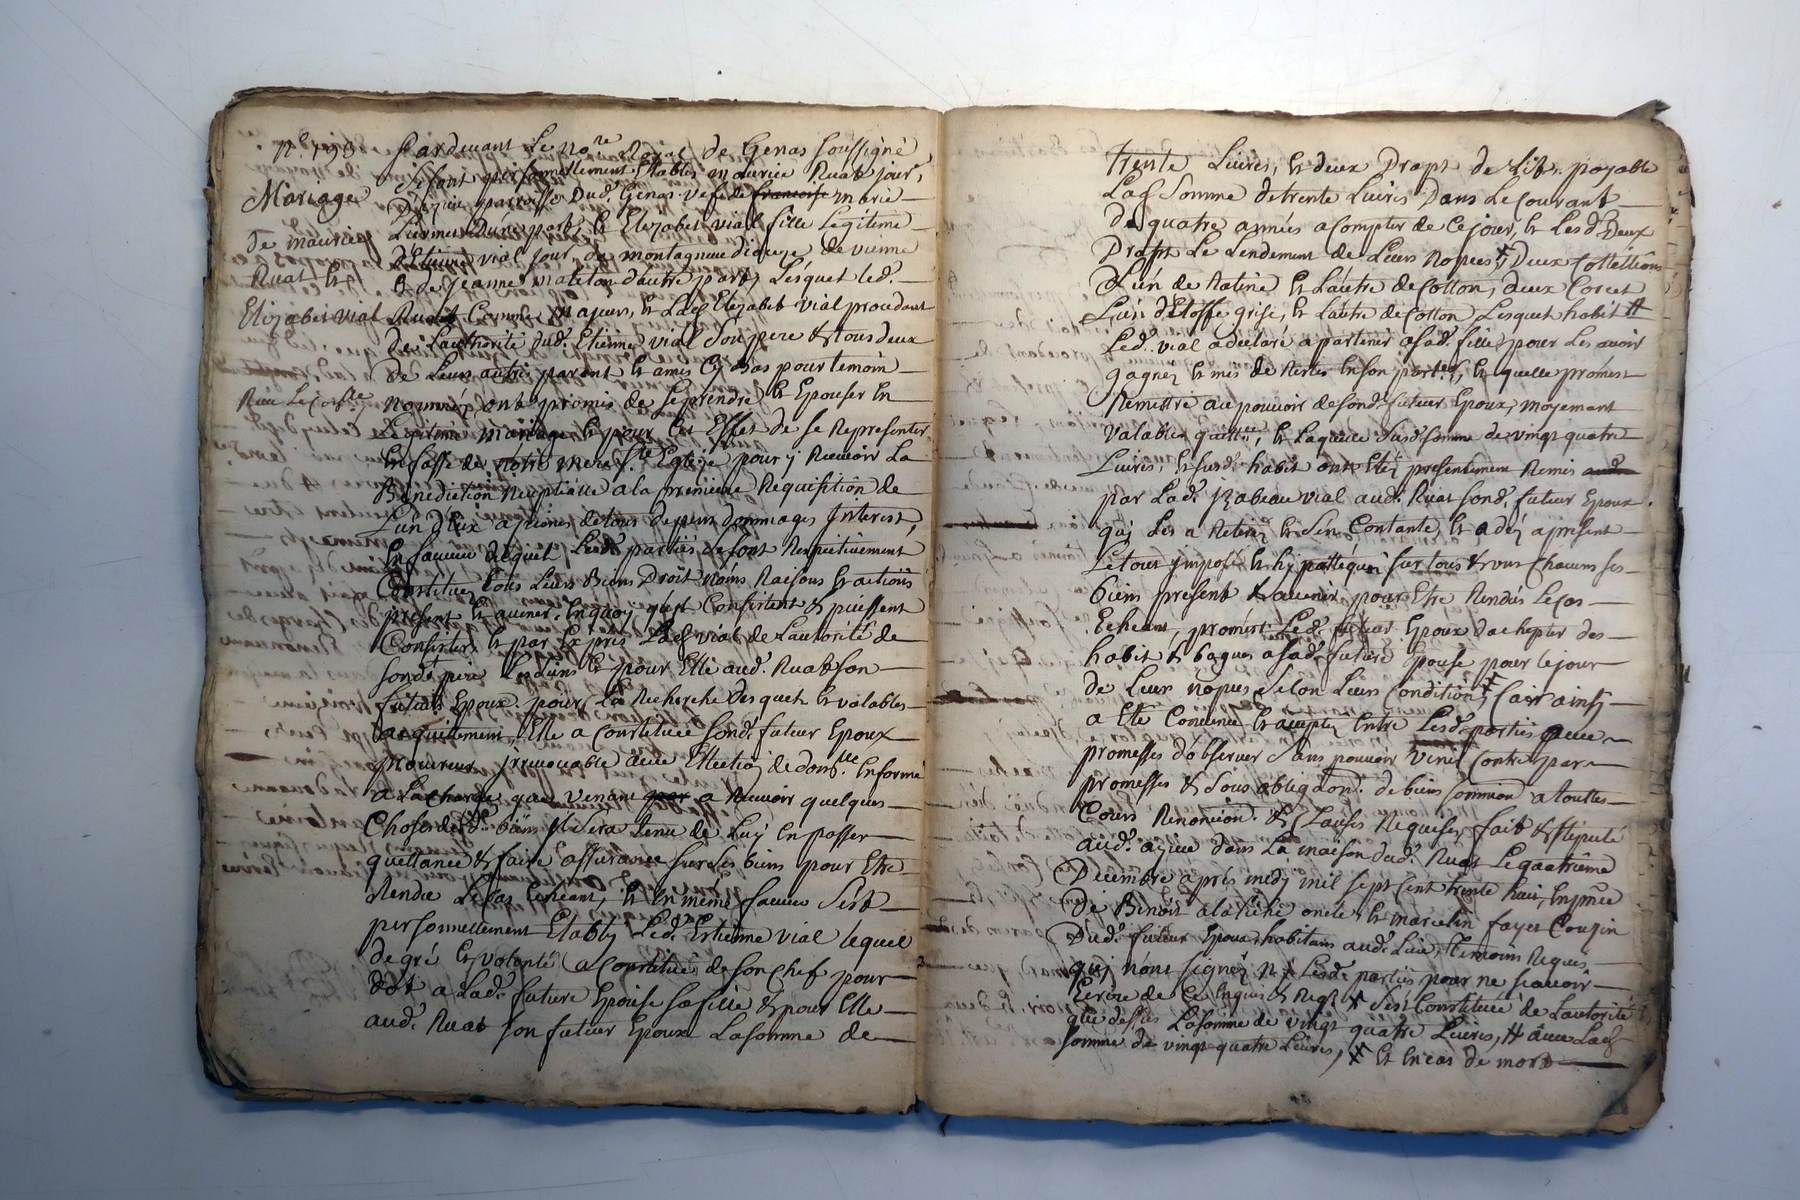 Mariage
de maurice
Ruat et
Elizabet vial
Pardevant Le no.re Royal de Genas soussigné
se sont personnellement Etablis maurice Ruat jour,
parroisse Dud. Genas vef de francoise marie
D'une part, et Elizabet vial fille Legitime
d'Etienne vial jour, de montagnieu dioceze de vienne
& de jeanne matelon d'autre part, Lesquel led.
Ruat Comme majeur, et Lad. Elizabet vial procedant
de L'authorité dud. Etienne vial son pere & tous deux
de Leurs autres parent et amis Cy bas pour temoin
nommés ont promis de se prendre et Epouser En
Legitime mariage et pour Cet Effet de se Representer
En fasse de notre mere S.te Eglize pour y Recevoir La
Benediction nuptialle a la premiere Requisition de
L'un d'Eux a peine de tous depens dommages Interest,
En faveur duquel Lesd. parties se sont Respectivement
Constitué tous Leurs Biens Droit noms Raisons et actions
present et avenir, En quoy qu'il Consistent & puissent
Consister, et par Exprés Lad. vial de L'autorité de
sond. pere Les siens et pour Elle aud. Ruat son
futur Epoux, pour La Recherche desquels et valables
acquittement Elle a Constitué sond. futur Epoux
procureur jrrevocable avec Ellection de dom.lle En forme
a La charge que venant a Recevoir quelques
Choses desd. biens il sera tenu de Luy En passer
quittance & faire assurance sur ses biens pour Etre
Rendue Le Cas Echeant, et En même faveur s'est
personnellement Etably Led. Estienne vial lequel
de gré et volonté a Constitué de son Chef pour
dot a Lad. future Epouse sa fille & pour Elle
aud. Ruat son futur Epoux La somme de
trente Livres, et deux Drapt de Lit, payable
Lad. somme de trente Livres Dans Le Courant
de quatre années a Compter de Ce jour, et Lesd. Deux
Drapt Le Lendemain de Leurs nopces, # Deux Cottillons
L'un de Ratine et L'autre de Cotton, deux Corcet
L'un d'Etoffe grise, et L'autre de Cotton Lesquel habit #
Led. vial a declaré apartenir a sad. fille pour Les avoir
gagnez et mis de Restes En son et qu'elle promest
Remettre au pouvoir de sond. futur Epoux, moyenant
valables quitt.ce, et Laquelle susd. somme de vingt quatre
Livres, et susd. habit ont Eté presentement Remis
par Lad. jzabeau vial aud. Ruat sond. futur Epoux
qui Les a Retirez et s'en Contante, et a dez a present
Le tout jmposé et hypottéqué sur tous & vns Chacuns ses
biens present & avenir pour Etre Rendus Le Cas
Echeant, promest Led. futur Epoux d'achepter des
habit & bagues a sad. future Epouse pour le jour
de Leur nopces selon Leurs Condition, # Car ainsy
a Eté Convenu et accepté Entre Lesd. parties avec
promesses d'observer sans pouvoir venir Contre par
promesses & sous obligaon. de biens soumon. a touttes
Cours Renonciaon. & Clauses Requises, fait & stipulé
aud. azieu dans La maison dud. Ruat Le quatrième
Decembre aprés midy mil sept Cent trente huit, En pñce
De Benoit oncle et marcelin fayet Cousin
Dud. futur Epoux habitans aud. Lieu, temoins Requis
qui n'ont signéz ni Lesd. parties pour ne scavoir
Ecrire de Ce Enquis & Req.s # s'est Constituée de L'autorité
que dessus La somme de vingt quatre Livres, # avec Lad.
somme de vingt quatre Livres, # et En cas de mort